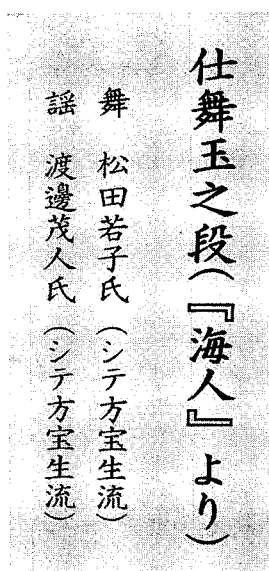 仕舞玉之段(『海人』より)
舞 松田若子氏 (シテ方宝生流)
謡 渡邊茂人氏 (シテ方宝生流)